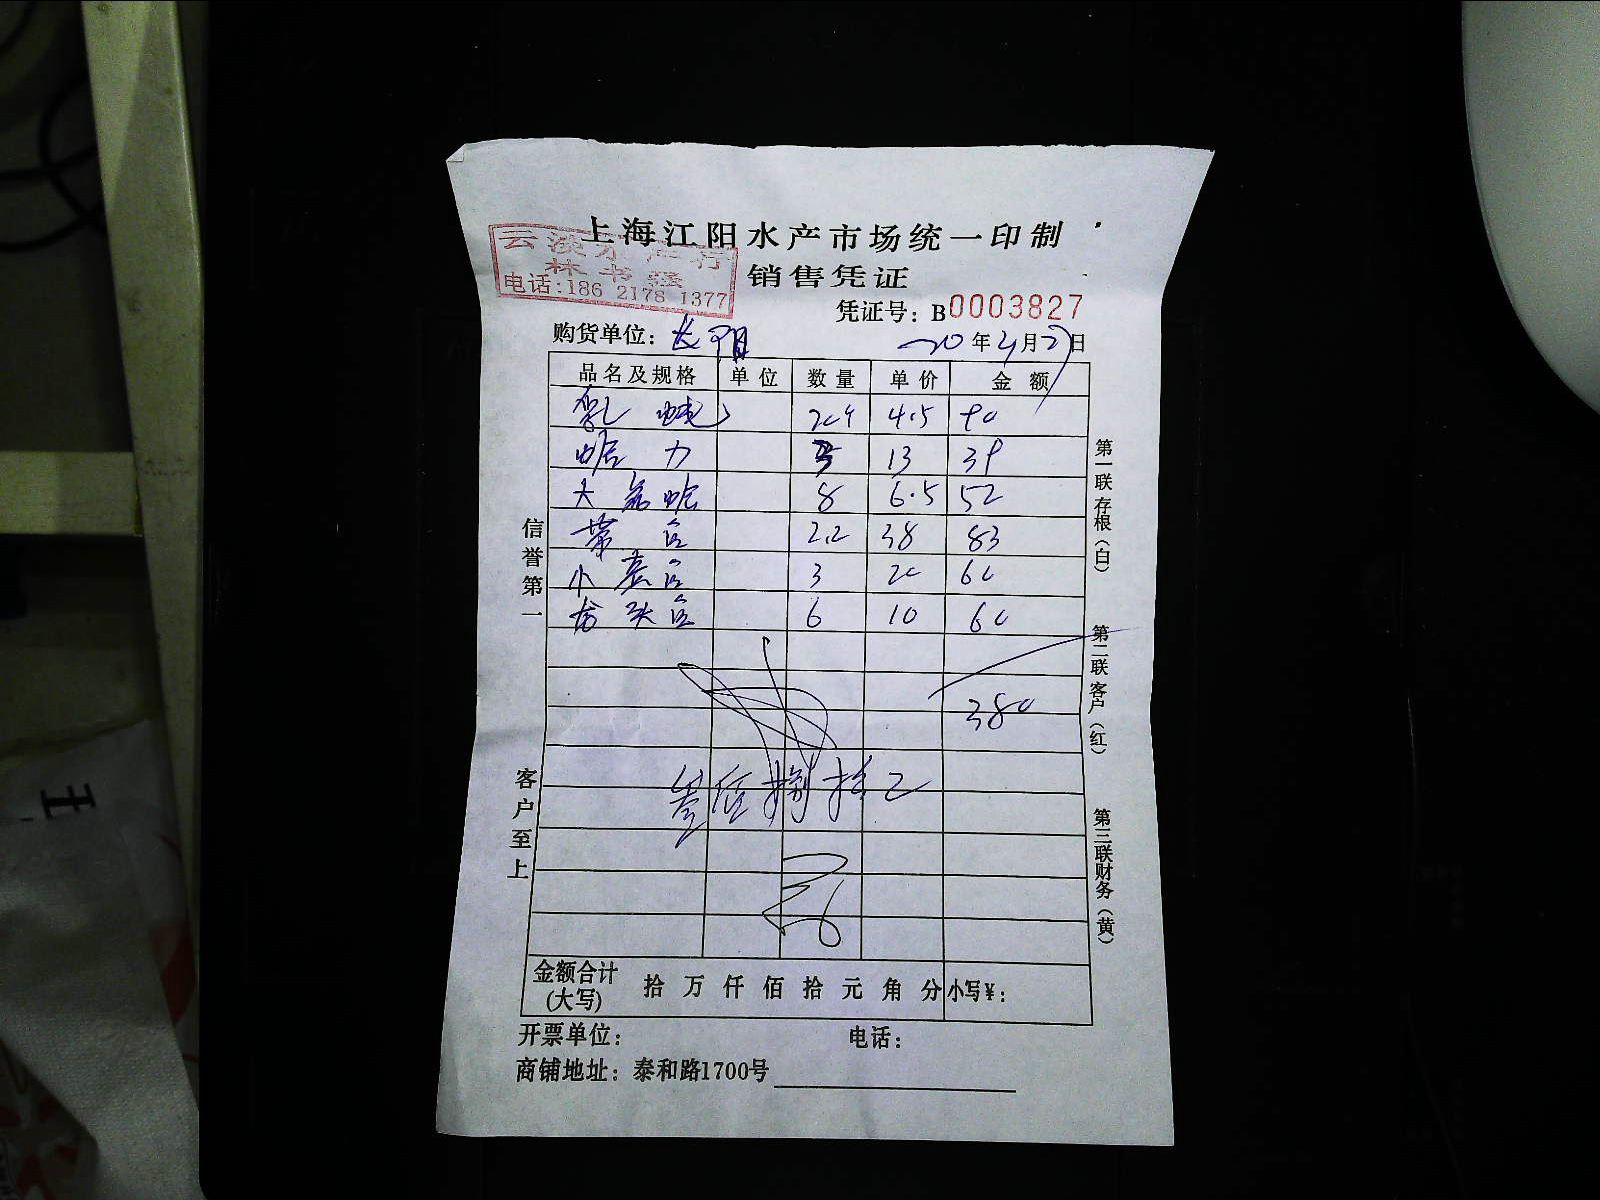 上海江阳水产市场统一印制
销售凭证
云 水产行
林书强
电话:186 2178 1377
凭证号: B0003827
购货单位: 长阳
20年4月27日
品名及规格 单位 数量 单价 金额
4.5 90
蛤力 3 13 39
大 蛤 8 6.5 52
带鱼 2.2 38 83
小黄鱼 3 20 60
龙头鱼 6 10 60
380
叁佰捌拾元
信誉第一
客户至上
第一联存根(白)
第二联客户(红)
第三联财务(黄)
金额合计
(大写)
拾 万 仟 佰 拾 元 角 分 小写¥:
开票单位: 电话:
商铺地址: 泰和路1700号